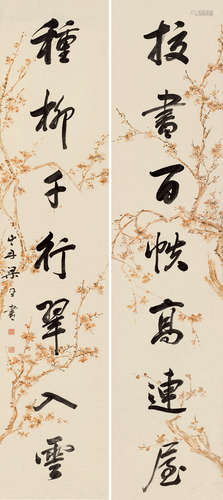 校書百帙高連屋
種柳千行翠入雲